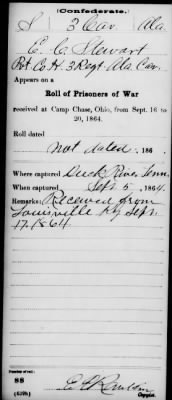 (Confederate.)
S 3 Cav Ala
E. C. Stewart
Pvt Co H. 3 Regt Ala. Cav.
Appears on a
Roll of Prisoners of War
received at Camp Chase, Ohio, from Sept. 16 to
20, 1864.
Roll dated
not dated. 186 .
Where captured Duck River, Tenn.
When captured Sept. 5, 1864.
Remarks: Received from
Louisville Ky Sept.
17. 1864.
Number of roll:
88
(639b) Copyist.